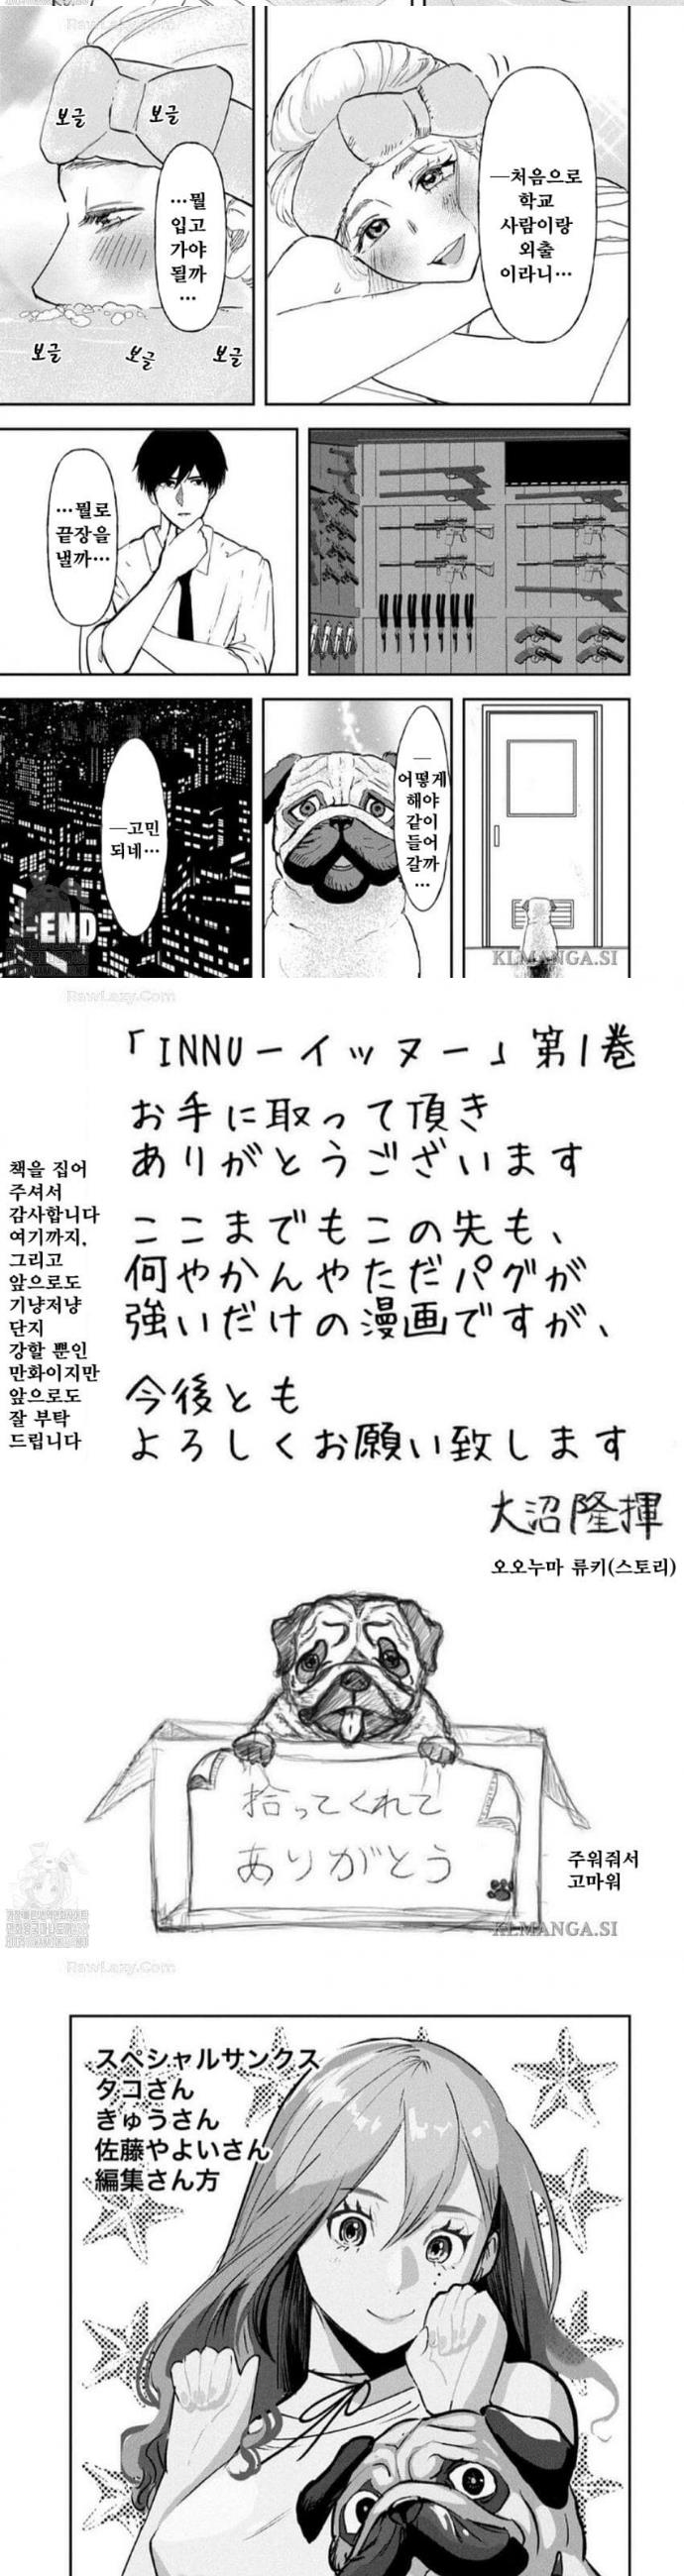 RawLazy.Com
―처음으로
학교
사람이랑
외출
이라니…
보글
보글
…뭘
입고
가야
될까
…
보글
보글
보글
…뭘로
끝장을
낼까…
―
어떻게
해야
같이
들어
갈까
…
―고민
되네…
-END-
KLMANGA.SI
RawLazy.Com
「INNUーイッヌー」第1巻
お手に取って頂き
ありがとうございます
ここまでもこの先も、
何やかんやただパグが
強いだけの漫画ですが、
今後とも
よろしくお願い致します
大沼隆揮
책을 집어
주셔서
감사합니다
여기까지,
그리고
앞으로도
기냥저냥
단지
강할 뿐인
만화이지만
앞으로도
잘 부탁
드립니다
오오누마 류키(스토리)
拾ってくれて
ありがとう
주워줘서
고마워
KLMANGA.SI
RawLazy.Com
スペシャルサンクス
タコさん
きゅうさん
佐藤やよいさん
編集さん方